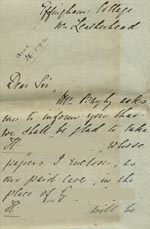 Effingham Cottage
Nr. Leatherhead
Dear Sir
Mr. Bayly asks
me to inform you that
we shall be glad to take
H. whose
papers I inclose, as
our paid case, in the
place of
H. will be